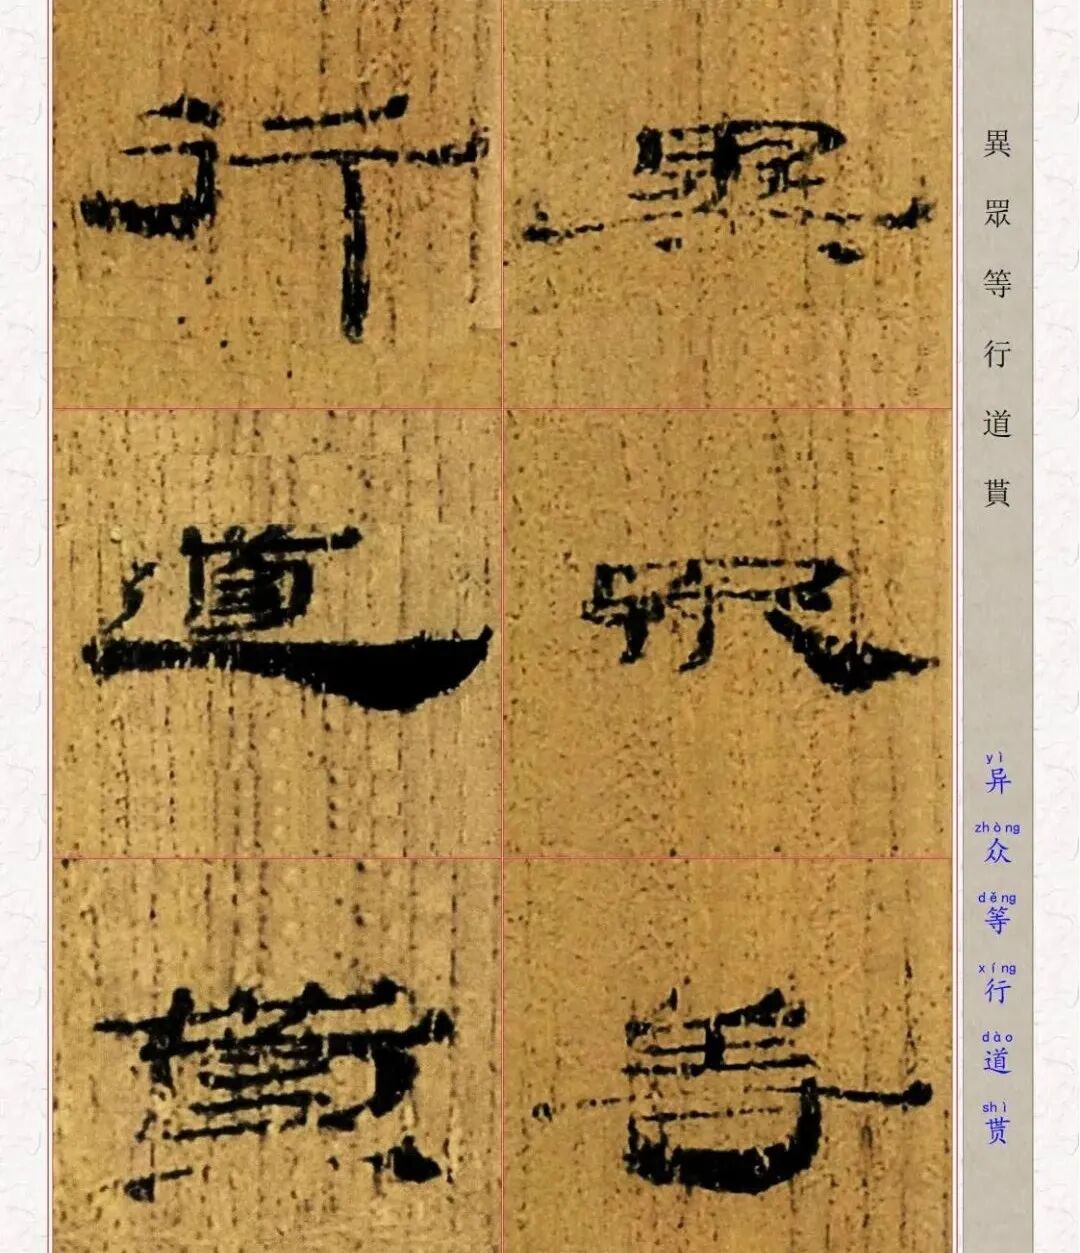 異眾等行道貰
yì zhòng děng xíng dào shì
异众等行道贳
異眾等
行道貰